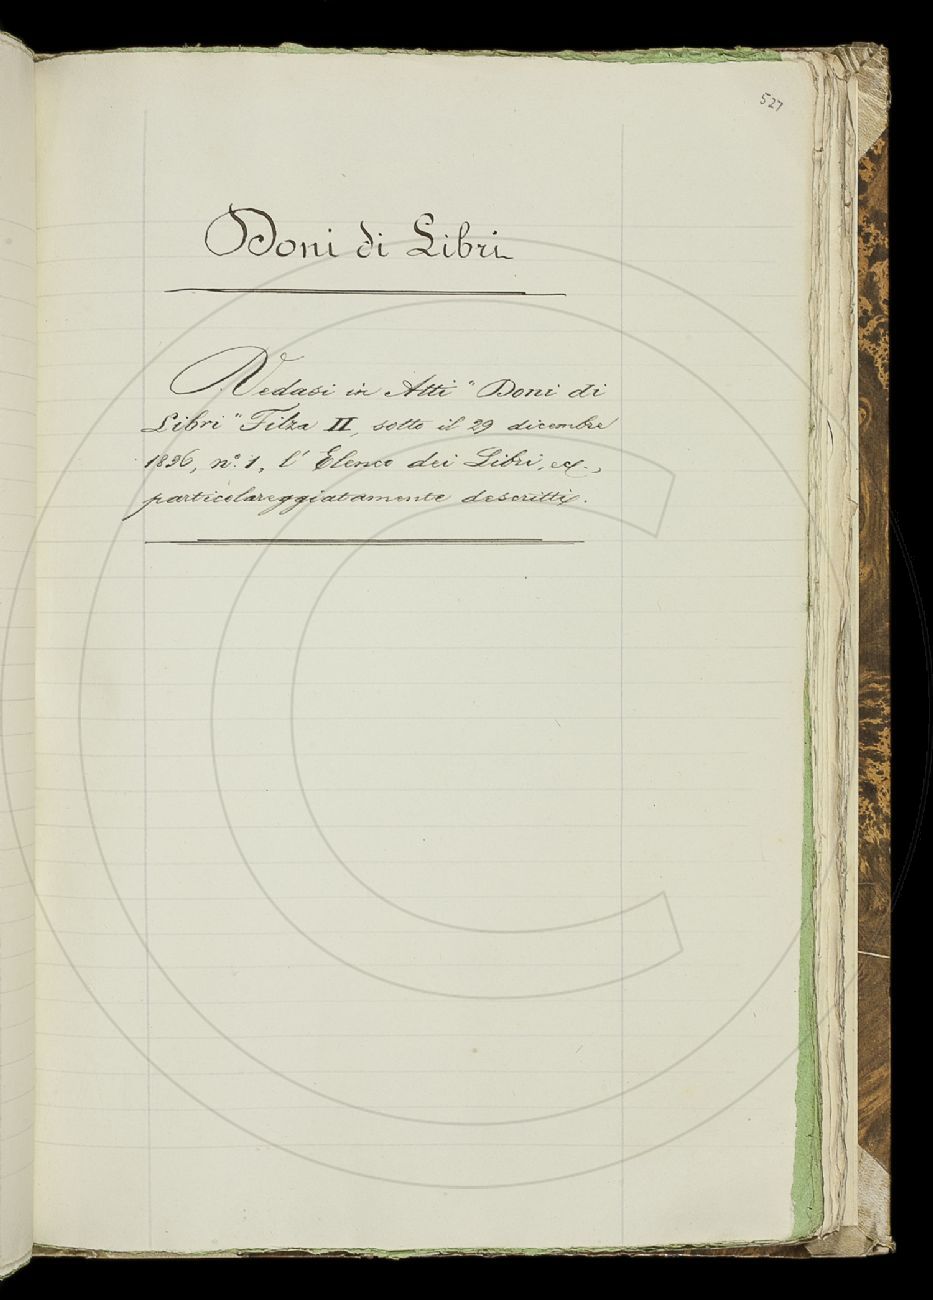 527
Doni di Libri
Vedasi in Atti "Doni di
Libri" Filza II, sotto il 29 dicembre
1896, n.º 1, l'Elenco dei Libri, ecc.,
particolareggiatamente descritti.